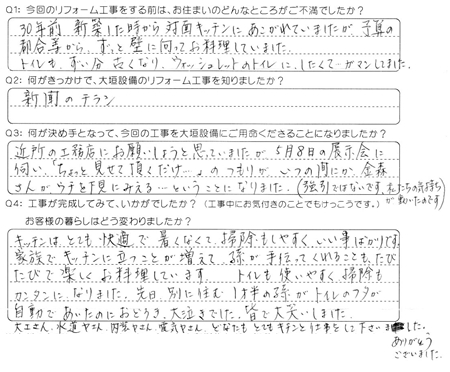 Q1: 今回のリフォーム工事をする前は、お住まいのどんなところがご不満でしたか?
30年前、新築した時から対面キッチンにあこがれていましたが、予算の
都合等から、ずっと壁に向ってお料理していました。
トイレも、ずい分古くなり、ウォッシュレットのトイレに、したくて…ガマンしてました。
Q2: 何がきっかけで、大垣設備のリフォーム工事を知りましたか?
新聞のチラシ
Q3: 何が決め手となって、今回の工事を大垣設備にご用命くださることになりましたか?
近所の工務店にお願いしようと思っていましたが5月8日の展示会に
伺い「ちょっと見せて頂くだけ…」のつもりが、いつの間にか、金森
さんがウチを下見にみえる…ということになりました。(強引ではないです、私たちの気持ち
が動いたのです)
Q4: 工事が完成してみて、いかがでしたか? (工事中にお気付きのことでもけっこうです。)
お客様の暮らしはどう変わりましたか?
キッチンは、とても快適で暑くなくて、掃除もしやすく、いい事ばかりです。
家族でキッチンに立つことが増えて、孫が手伝ってくれることも、たび
たびで楽しくお料理しています。 トイレも使いやすく、掃除も
カンタンになりました。先日、別に住む1才半の孫がトイレのフタが
自動であいたのにおどろき、大泣きでした。皆で大笑いしました。
大工さん、水道やさん、内装やさん、電気やさん、どなたもとてもキチンと仕事をして下さいました。
ありがとう
ございました。